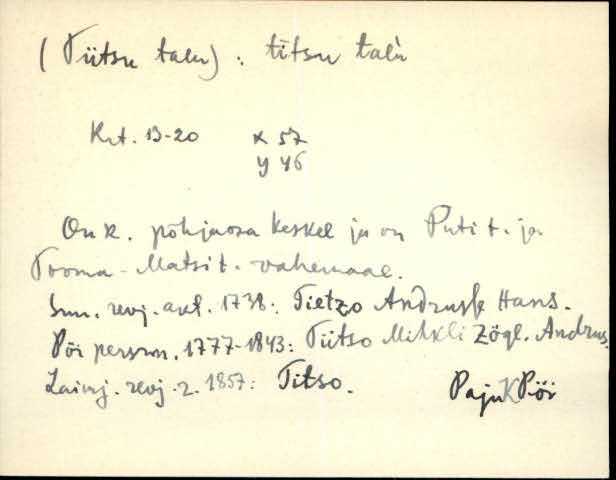 (Tiitsu talu) : tītsu talù
Krt. 13-20 x 57
y 46
On k. põhjaosa keskel ja on Puti t. ja
Tooma-Matsi t. vahemaal.
Sun. revj. akt. 1738: Tietzo Andrusse Hans.
Pöi person. 1777-1843: Tiitso Mihkli Zögl. Andrus.
Laimj. revj. 2. 1857: Titso.
Paju K Pöi